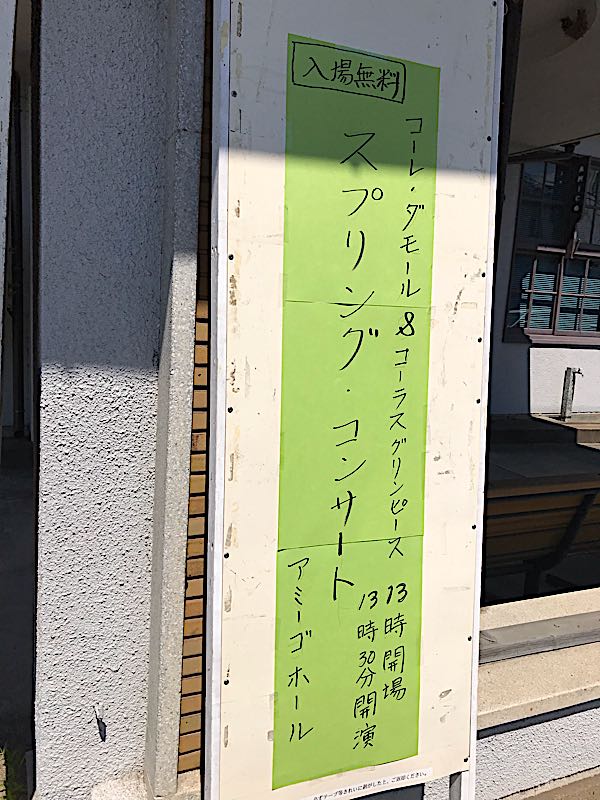 入場無料
コーレ・ダモール & コーラスグリンピース
スプリング・コンサート
13時開場
13時30分開演
アミーゴホール